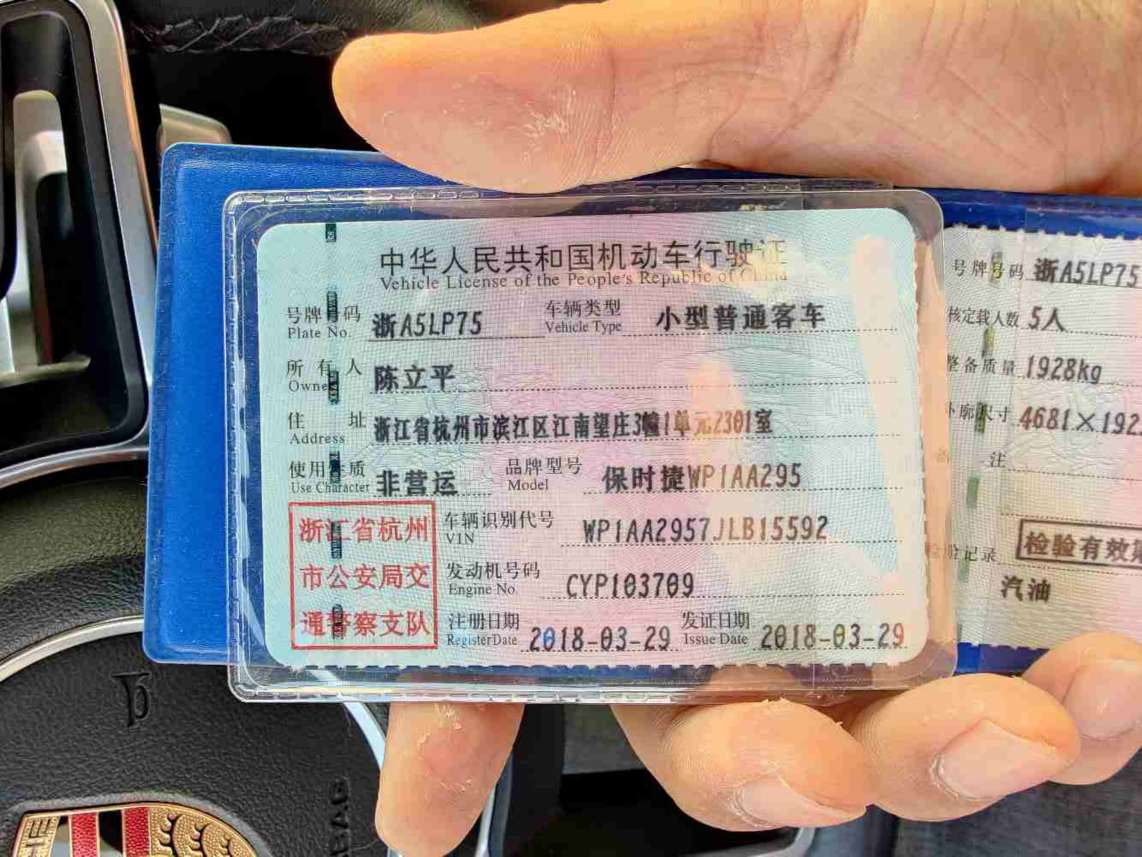 中华人民共和国机动车行驶证
Vehicle License of the People's Republic of China
号牌号码 浙A5LP75 车辆类型 小型普通客车
Plate No. Vehicle Type
所有人 陈立平
Owner
住址 浙江省杭州市滨江区江南望庄3幢1单元2301室
Address
使用性质 非营运 品牌型号 保时捷WP1AA295
Use Character Model
浙江省杭州
市公安局交
通警察支队
车辆识别代号 WP1AA2957JLB15592
VIN
发动机号码 CYP103709
Engine No.
注册日期 2018-03-29 发证日期 2018-03-29
Register Date Issue Date
号牌号码 浙A5LP75
核定载人数 5人
整备质量 1928kg
外廓尺寸 4681×192
备注
检验记录 检验有效期
汽油